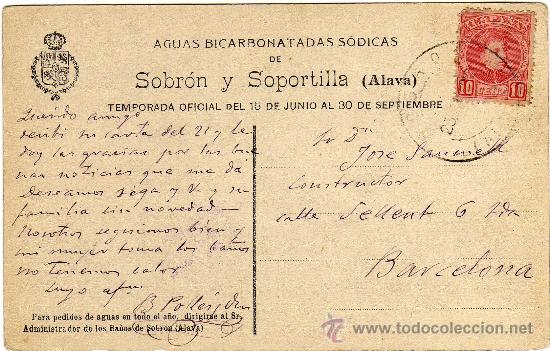 AGUAS BICARBONATADAS SÓDICAS
DE
Sobrón y Soportilla (Alava)
TEMPORADA OFICIAL DEL 15 DE JUNIO AL 30 DE SEPTIEMBRE
10 10
Querido amigo
recibi su carta del 21 y le
doy las gracias por las bue
nas noticias que me dá
Deseamos siga V. y su
familia sin novedad
Nosotros seguimos bien y
mi mujer toma los baños
no tenemos calor
Suyo afmo
Sr Dn
Jose
Constructor
calle 6
Barcelona
Para pedidos de aguas en todo el año, dirigirse al Sr.
Administrador de los Baños de Sobrón (Alava)
todocoleccion.net